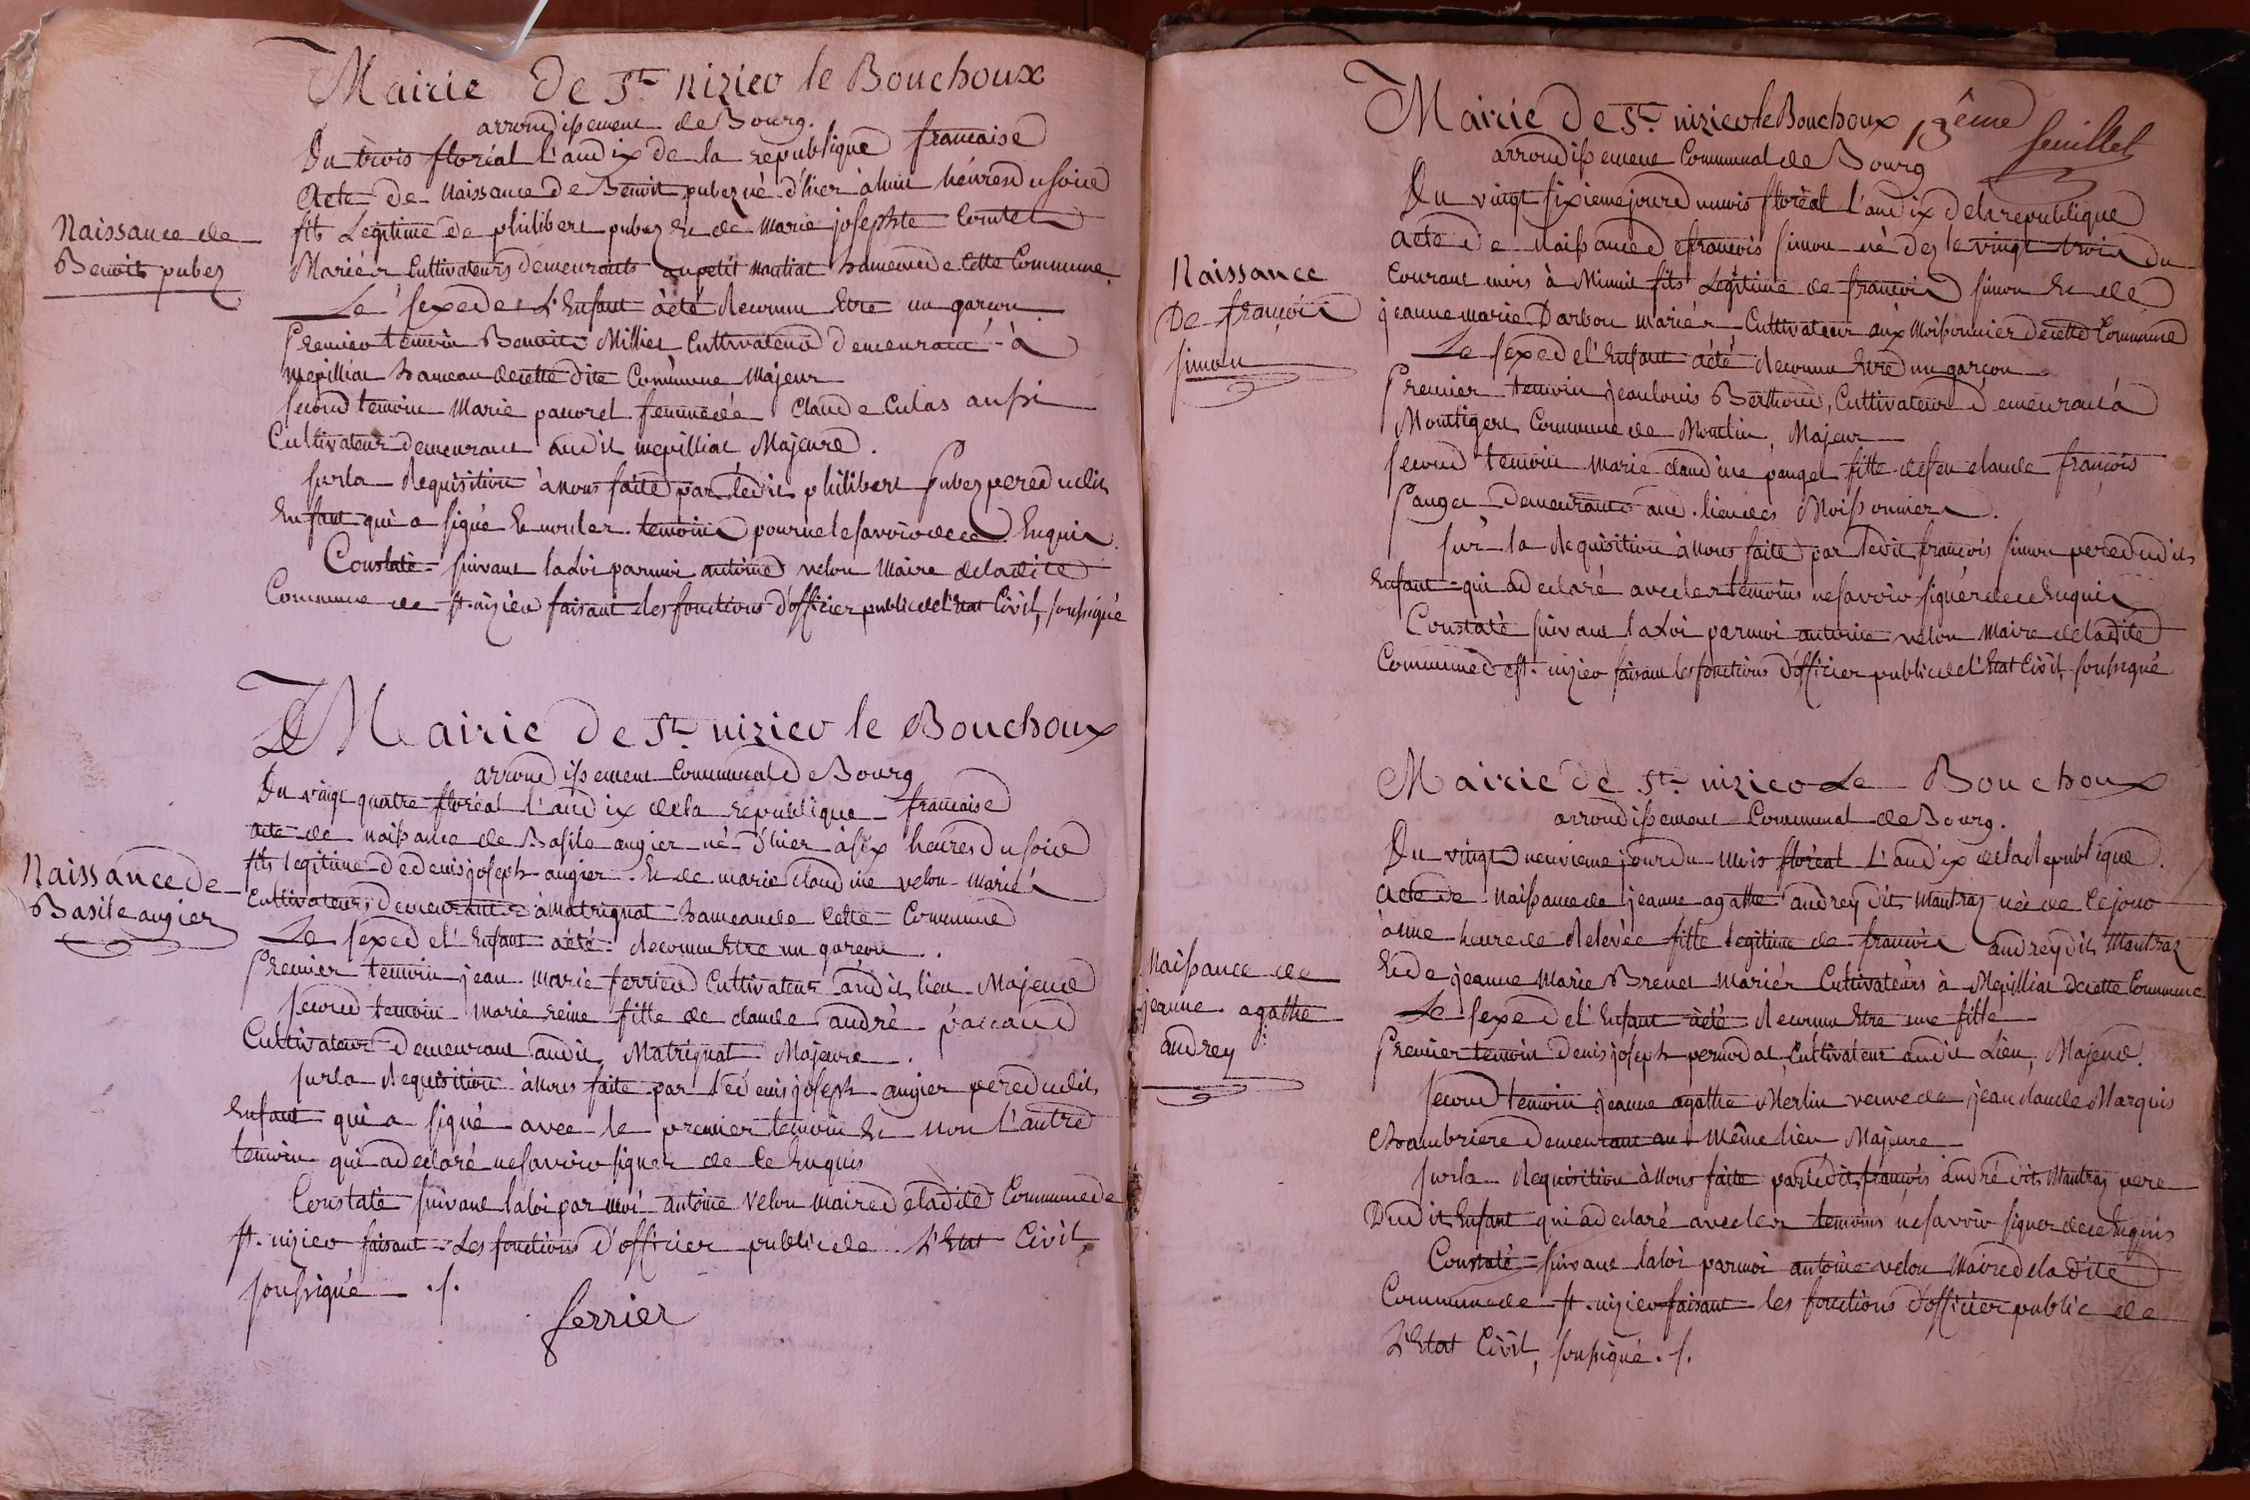 Mairie De St. nizier le Bouchoux
arrondissement de Bourg.
Du trois floréal l'an dix de la république francaise
Acte de Naissance de Benoit pubez né d'hier à huit héures du soir
fils Légitime de philibert pubez et de Marie josephte Comtet
Mariés Cultivateurs demeurants au petit Nantiat hameau de Cette Commune
Le sexe de L'Enfant à été Reconnu Etre un garcon
Premier temoin Benoite Millet Cultivateur demeurant à
mepilliat hameau de cette dite Commune Majeur
second temoin Marie pauvrel femme de Claude Culas aussi
Cultivateur demeurant audit mepilliat Majeure.
sur la Requisition à nous faite par lédit philibert Pubez pere dudit
Enfant qui a signé Et non les temoins pour ne le savoir de ce Enquis.
Constaté suivant la Loi par moi antoine velon Maire de la dite
Commune de st. nizier faisant les fonctions d'officier public de l'Etat Civil, soussigné
Naissance de
Benoit pubez
Mairie De St. nizier le Bouchoux
arrondissement Communal De Bourg
Du vingt quatre floréal l'an dix de la république francaise
acte de naissance de Basile augier né d'hier à six heures Du soir
fils legitime De denis joseph augier Et de marie claudine velon Mariés
Cultivateurs demeurants à Matrignat hameau de Cette Commune
Le sexe de l'Enfant à été reconnu Etre un garcon.
Premier temoin jean Marie ferrier Cultivateur audit lieu Majeur
second temoin marie reine fille de claude andré paccaud
Cultivateur Demeurant audit Matrignat Majeure.
sur la Requisition à Nous faite par le denis joseph augier pere dudit
Enfant qui a signé avec le premier temoin Et non l'autre
temoin qui a declaré ne savoir signer de ce Enquis
Constaté suivant la loi par moi antoine velon maire de la dite Commune de
st. nizier faisant Les fonctions d'officier public de L'Etat Civil,
soussigné ./.
ferrier
Naissance de
Basile augier
Mairie De St. nizier le Bouchoux
13ême feuillet
arrondissement Communal de Bourg
Du vingt sixieme jour du mois floréal l'an dix de la republique
Acte De Naissance de francois simon né dez le vingt trois du
Courant mois à Minuit fils Légitime de francois simon Et de
jeanne marie Darbon mariés Cultivateur aux Moissonnier de cette Commune
Le sexe de l'Enfant à été Reconnu Etre un garcon
Premier temoin jean louis Berthoud, Cultivateur demeurant à
Montigeu Commune de Montlin, Majeur
second temoin marie claudine pauget fille de feu claude françois
Pauget Demeurante aud. lieu des Moissonniers.
sur la Requisition à nous faite par ledit françois simon pere dudit
Enfant qui a declaré avec les temoins ne savoir signer de ce Enquis
Constaté suivant la Loi par moi antoine velon Maire de la dite
Commune de st. nizier faisant les fonctions d'officier public de l'Etat Civil soussigné
Naissance
De françois
simon
Mairie De St. nizier Le Bouchoux
arrondissement Communal de Bourg.
Du vingt neuvieme jour du Mois floréal l'an dix de la Republique.
Acte de Naissance de jeanne agathe andrey dit Mantraz née de Ce jour
à une heure de Relevée fille legitime de francois andrey dit Mantraz
Et de jeanne Marie Brenet Mariés Cultivateurs à Mepilliat de cette Commune
Le sexe de l'Enfant à été Reconnu Etre une fille
Premier temoin denis joseph pernodat, Cultivateur audit Lieu, Majeur.
second temoin jeanne agathe Merlin veuve de jean claude Marquis
Chambriere demeurant au Même lieu Majeure
sur la Requisition à Nous faite par lédit françois andré dit Mantraz pere
Dudit Enfant qui a declaré avec les temoins ne savoir signer de ce Enquis
Constaté suivant la loi par moi antoine velon Maire de la dite
Commune de st. nizier faisant les fonctions d'officier public de
L'Etat Civil, soussigné ./.
Naissance de
jeanne agathe
andrey